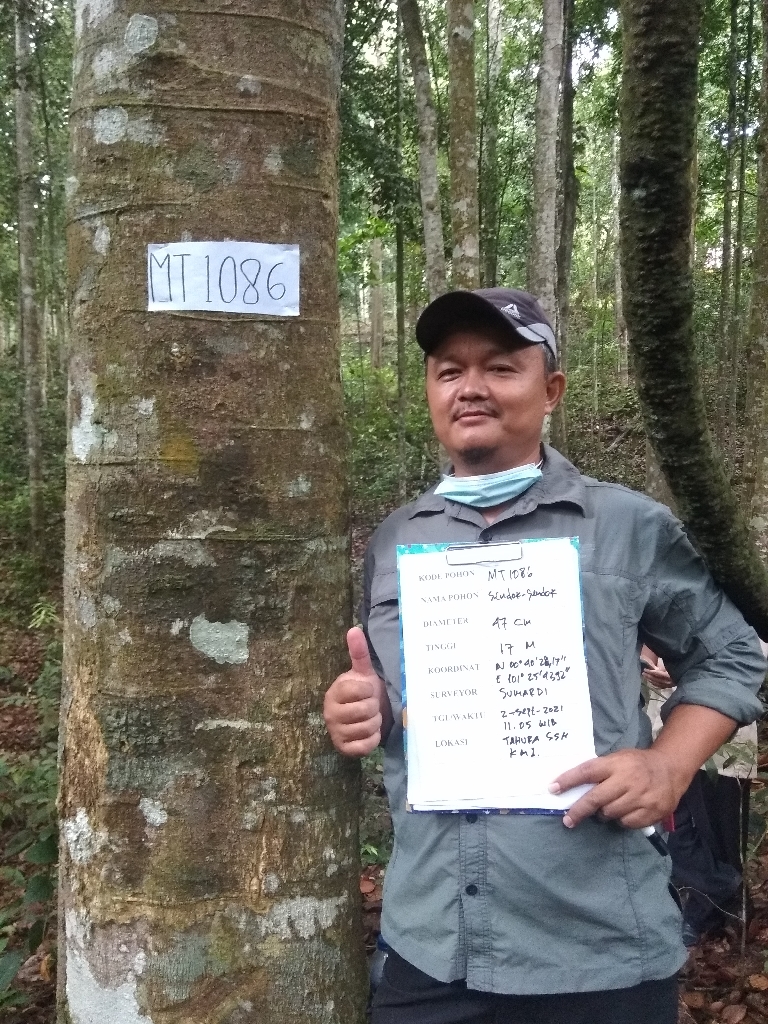 MT 1086
KODE POHON MT 1086
NAMA POHON Sendok-Sendok
DIAMETER 47 CM
TINGGI 17 M
KOORDINAT N 00°40'28,17"
E 101°25'43,92"
SURVEYOR SUHARDI
TGL/WAKTU 2-SEPT-2021
11.05 WIB
LOKASI TAHURA SSH
KM 2.